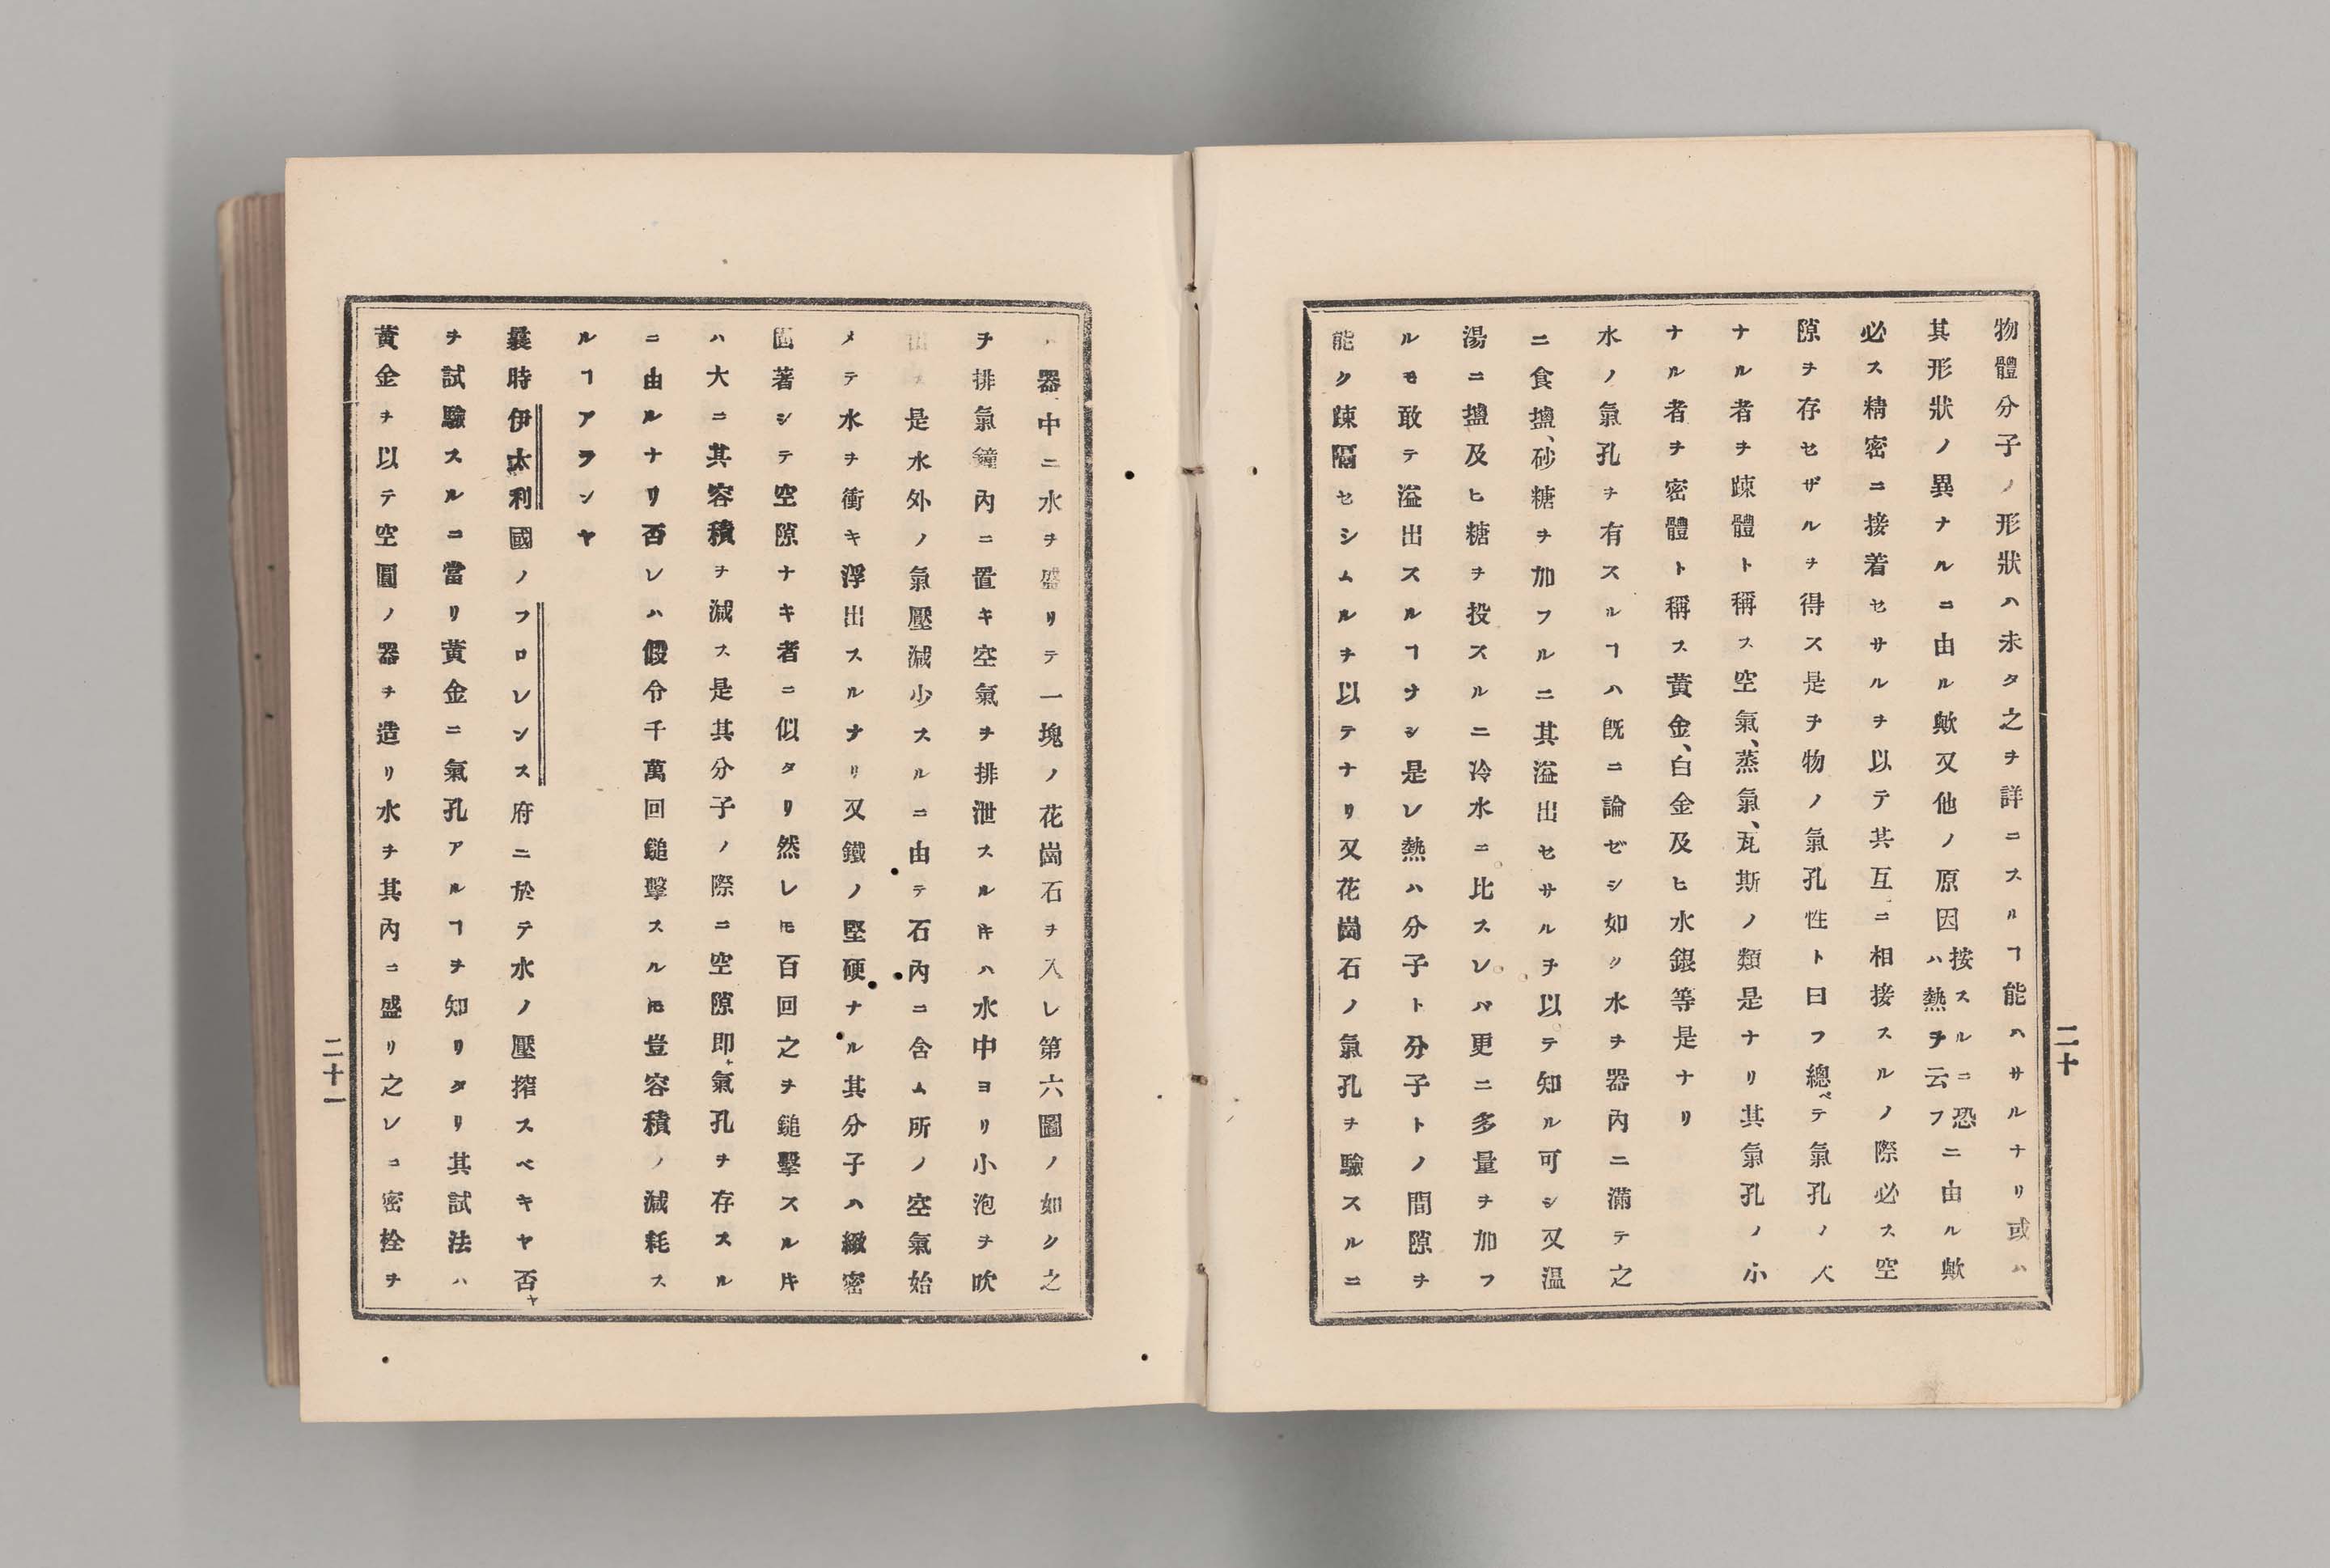 物體分子ノ形狀ハ未タ之ヲ詳ニスルヿ能ハサルナリ或ハ
其形狀ノ異ナルニ由ル歟又他ノ原因按スルニ恐ハ熱ヲ云フニ由ル歟
必ス精密ニ接着セサルヲ以テ其互ニ相接スルノ際必ス空
隙ヲ存セザルヲ得ス是ヲ物ノ氣孔性ト曰フ總ベテ氣孔ノ大
ナル者ヲ踈體ト稱ス空氣、蒸氣、瓦斯ノ類是ナリ其氣孔ノ小
ナル者ヲ密體ト稱ス黃金、白金及ヒ水銀等是ナリ
水ノ氣孔ヲ有スルヿハ旣ニ論ゼシ如ク水ヲ器內ニ滿テ之
ニ食鹽、砂糖ヲ加フルニ其溢出セサルヲ以テ知ル可シ又温
湯ニ鹽及ヒ糖ヲ投スルニ冷水ニ比スレバ更ニ多量ヲ加フ
ルモ敢テ溢出スルヿナシ是レ熱ハ分子ト分子トノ間隙ヲ
能ク踈隔セシムルヲ以テナリ又花崗石ノ氣孔ヲ驗スルニ
二十
器中ニ水ヲ盛リテ一塊ノ花崗石ヲ入レ第六圖ノ如ク之
ヲ排氣鐘內ニ置キ空氣ヲ排泄スルキハ水中ヨリ小泡ヲ吹
是水外ノ氣壓減少スルニ由テ石內ニ含ム所ノ空氣始
メテ水ヲ衝キ浮出スルナリ又鐵ノ堅硬ナル其分子ハ緻密
固著シテ空隙ナキ者ニ似タリ然レ𪜈百回之ヲ鎚擊スルキ
ハ大ニ其容積ヲ減ス是其分子ノ際ニ空隙即チ氣孔ヲ存スル
ニ由ルナリ否レハ假令千萬回鎚擊スル𪜈豈容積ノ減耗ス
ルヿアランヤ
曩時伊太利國ノフロレンス府ニ於テ水ノ壓搾スベキヤ否ヤ
ヲ試驗スルニ當リ黃金ニ氣孔アルヿヲ知リタリ其試法ハ
黃金ヲ以テ空圓ノ器ヲ造リ水ヲ其內ニ盛リ之レニ密栓ヲ
二十一